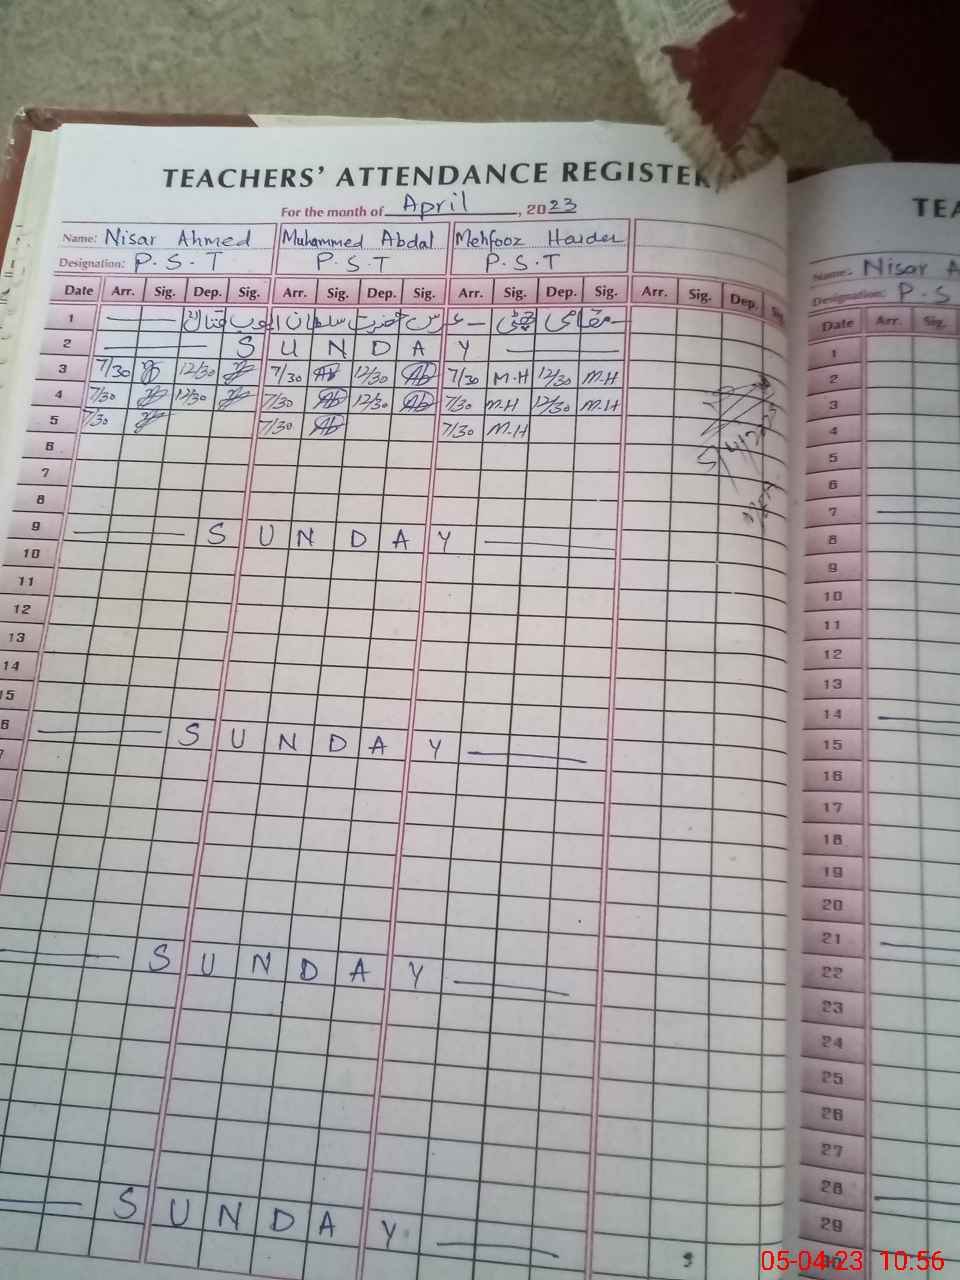 TEACHERS' ATTENDANCE REGISTER
For the month of April, 2023
Name: Nisar Ahmed Muhammed Abdal Mehfooz Haider
Designation: P.S.T P.S.T P.S.T
Date Arr. Sig. Dep. Sig. Arr. Sig. Dep. Sig. Arr. Sig. Dep. Sig. Arr. Sig. Dep.
1 مقامی چھٹی عرس حضرت سلطان ایوب قتال
2 SUNDAY
3 7/30 12/30 7/30 Ab 12/30 Ab 7/30 M.H 12/30 M.H
4 7/30 12/30 7/30 Ab 12/30 Ab 7/30 M.H 12/30 M.H
5 7/30 7/30 Ab 7/30 M.H
6
7
8
9 SUNDAY
10
11
12
13
14
15
6 SUNDAY
SUNDAY
SUNDAY
TEA
Name: Nisar A
Designation: P.S
Date Arr. Sig.
1
2
3
4
5
6
7
8
9
10
11
12
13
14
15
16
17
18
19
20
21
22
23
24
25
26
27
28
29
05-04-23 10:56